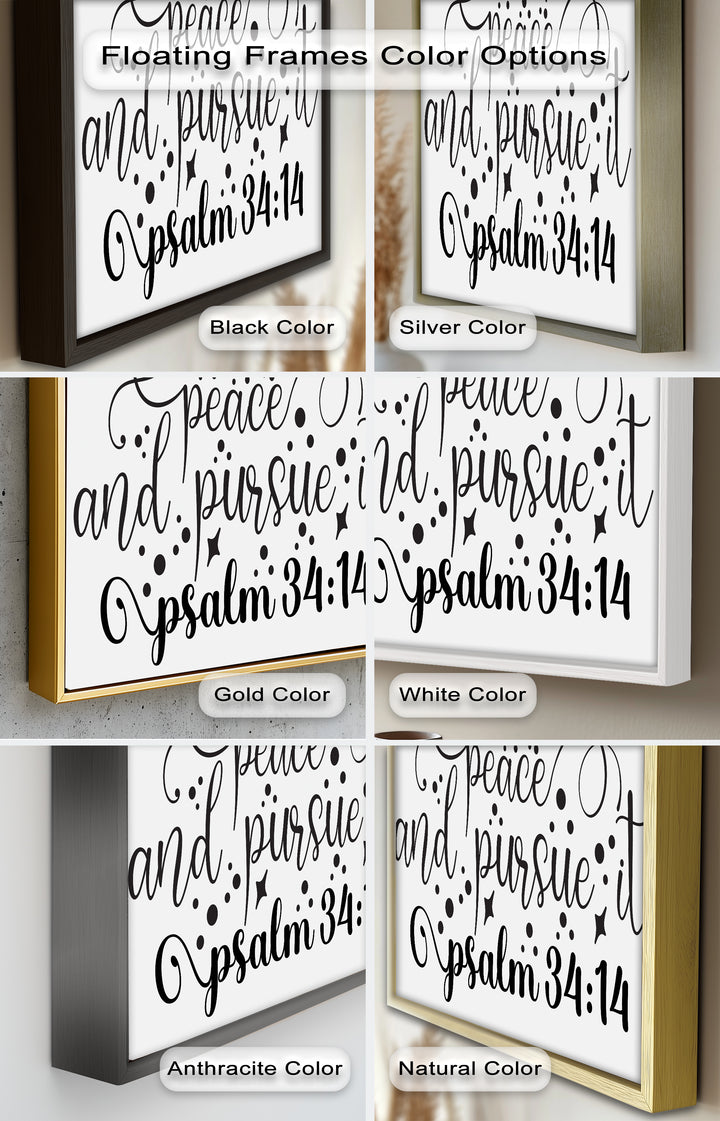 Floating Frames Color Options
peace.
and pursue it
psalm 34:14
Black Color
peace.
and pursue it
psalm 34:14
Silver Color
peace.
and pursue it
psalm 34:14
Gold Color
peace.
and pursue it
psalm 34:14
White Color
peace.
and pursue
psalm 34:
Anthracite Color
peace.
and pursue it
psalm 34:14
Natural Color